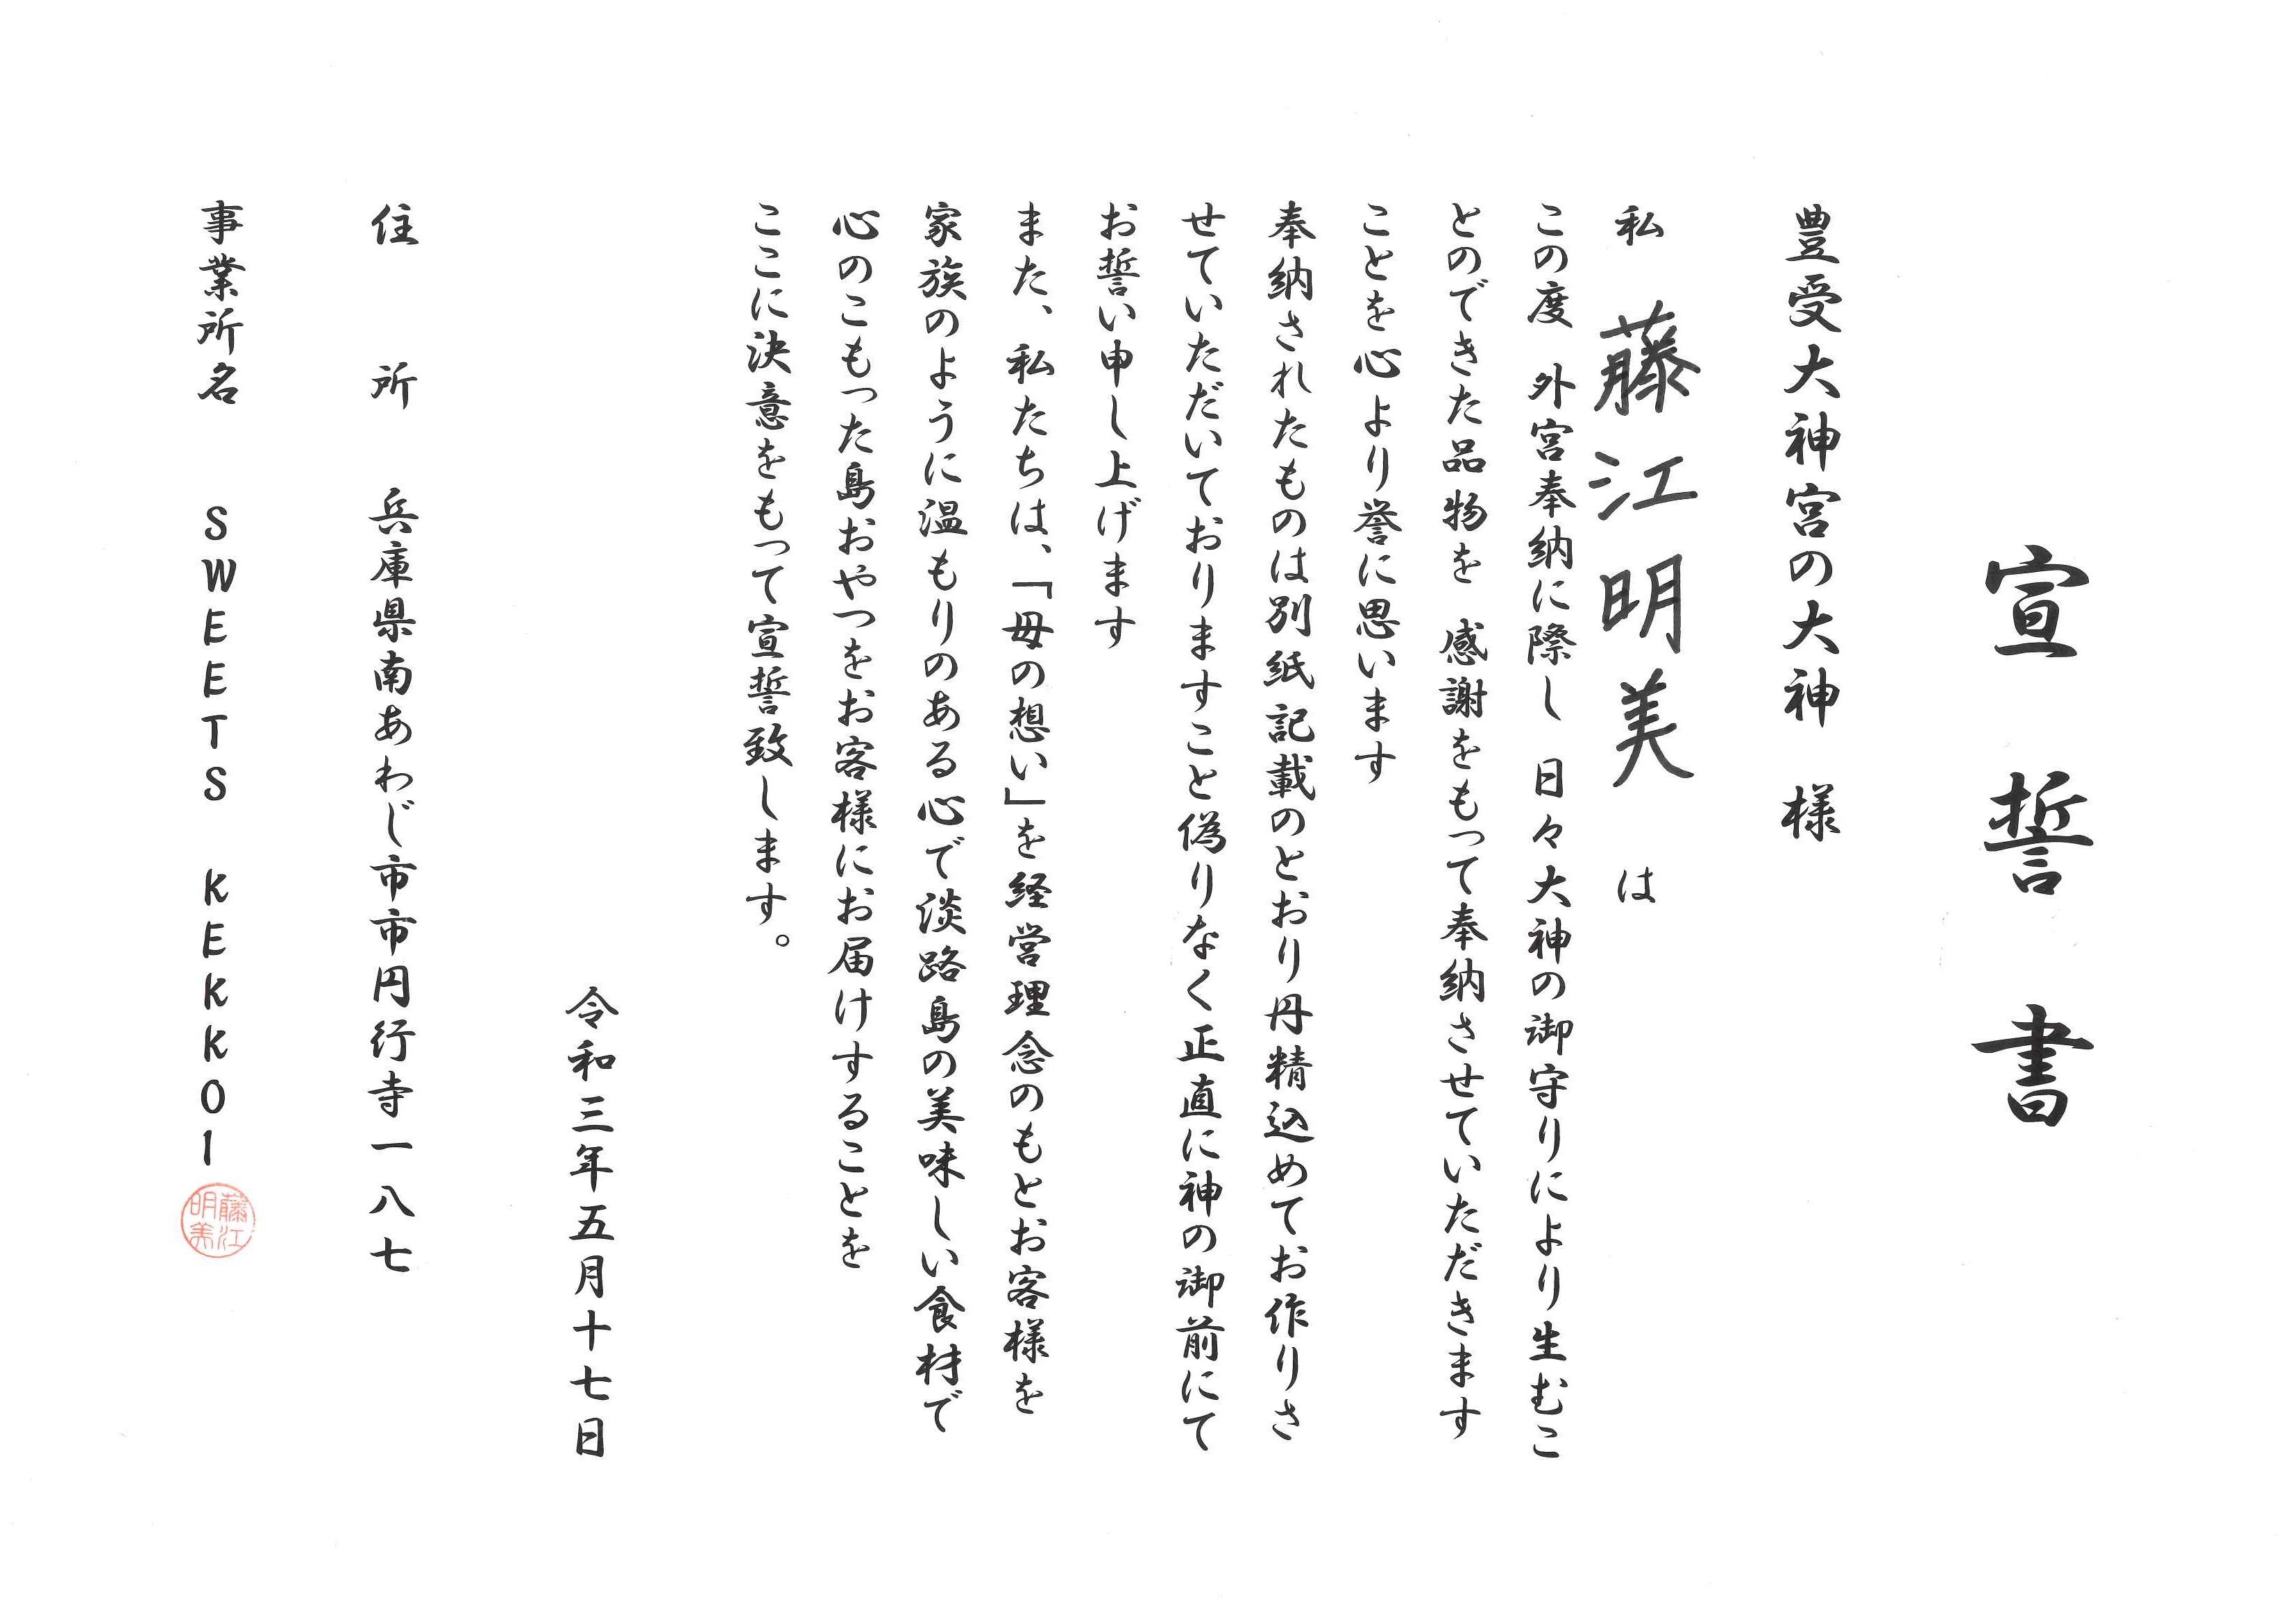 宣誓書
豊受大神宮の大神 様
私 藤江明美 は
この度 外宮奉納に際し 日々大神の御守りにより生むこ
とのできた品物を 感謝をもって奉納させていただきます
ことを心より誉に思います
奉納されたものは別紙記載のとおり丹精込めてお作りさ
せていただいておりますこと偽りなく正直に神の御前にて
お誓い申し上げます
また、私たちは、「母の想い」を経営理念のもとお客様を
家族のように温もりのある心で淡路島の美味しい食材で
心のこもった島おやつをお客様にお届けすることを
ここに決意をもって宣誓致します。
令和三年五月十七日
住所 兵庫県南あわじ市市円行寺一八七
事業所名 SWEETS KEKKOI
藤江
明美